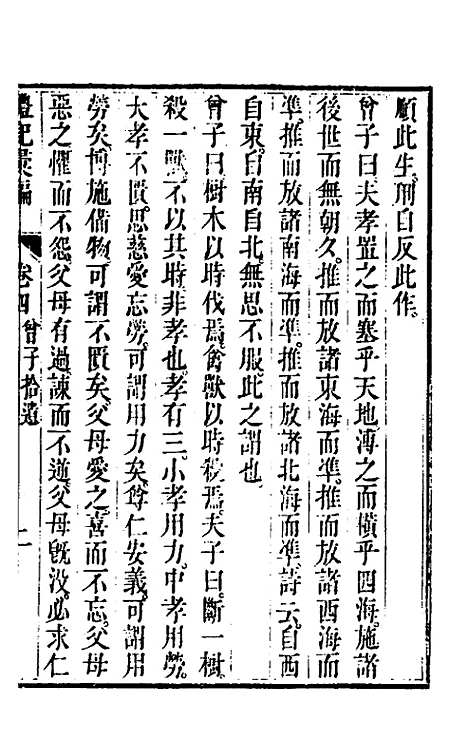 順此生刑自反此作。
曾子曰夫孝置之而塞乎天地溥之而橫乎四海施諸
後世而無朝久。推而放諸東海而準。推而放諸西海而
準。推而放諸南海而準。推而放諸北海而準。詩云。自西
自東。自南自北。無思不服此之謂也
曾子曰樹木以時伐焉。禽獸以時殺焉。夫子曰。斷一樹。
殺一獸。不以其時非孝也。孝有三。小孝用力。中孝用勞。
大孝不匱。思慈愛忘勞。可謂用力矣。尊仁安義。可謂用
勞矣。博施備物。可謂不匱矣。父母愛之。喜而不忘。父母
惡之。懼而不怨。父母有過。諫而不逆。父母旣沒。必求仁
禮記彙編
卷四曾子拾遺
二